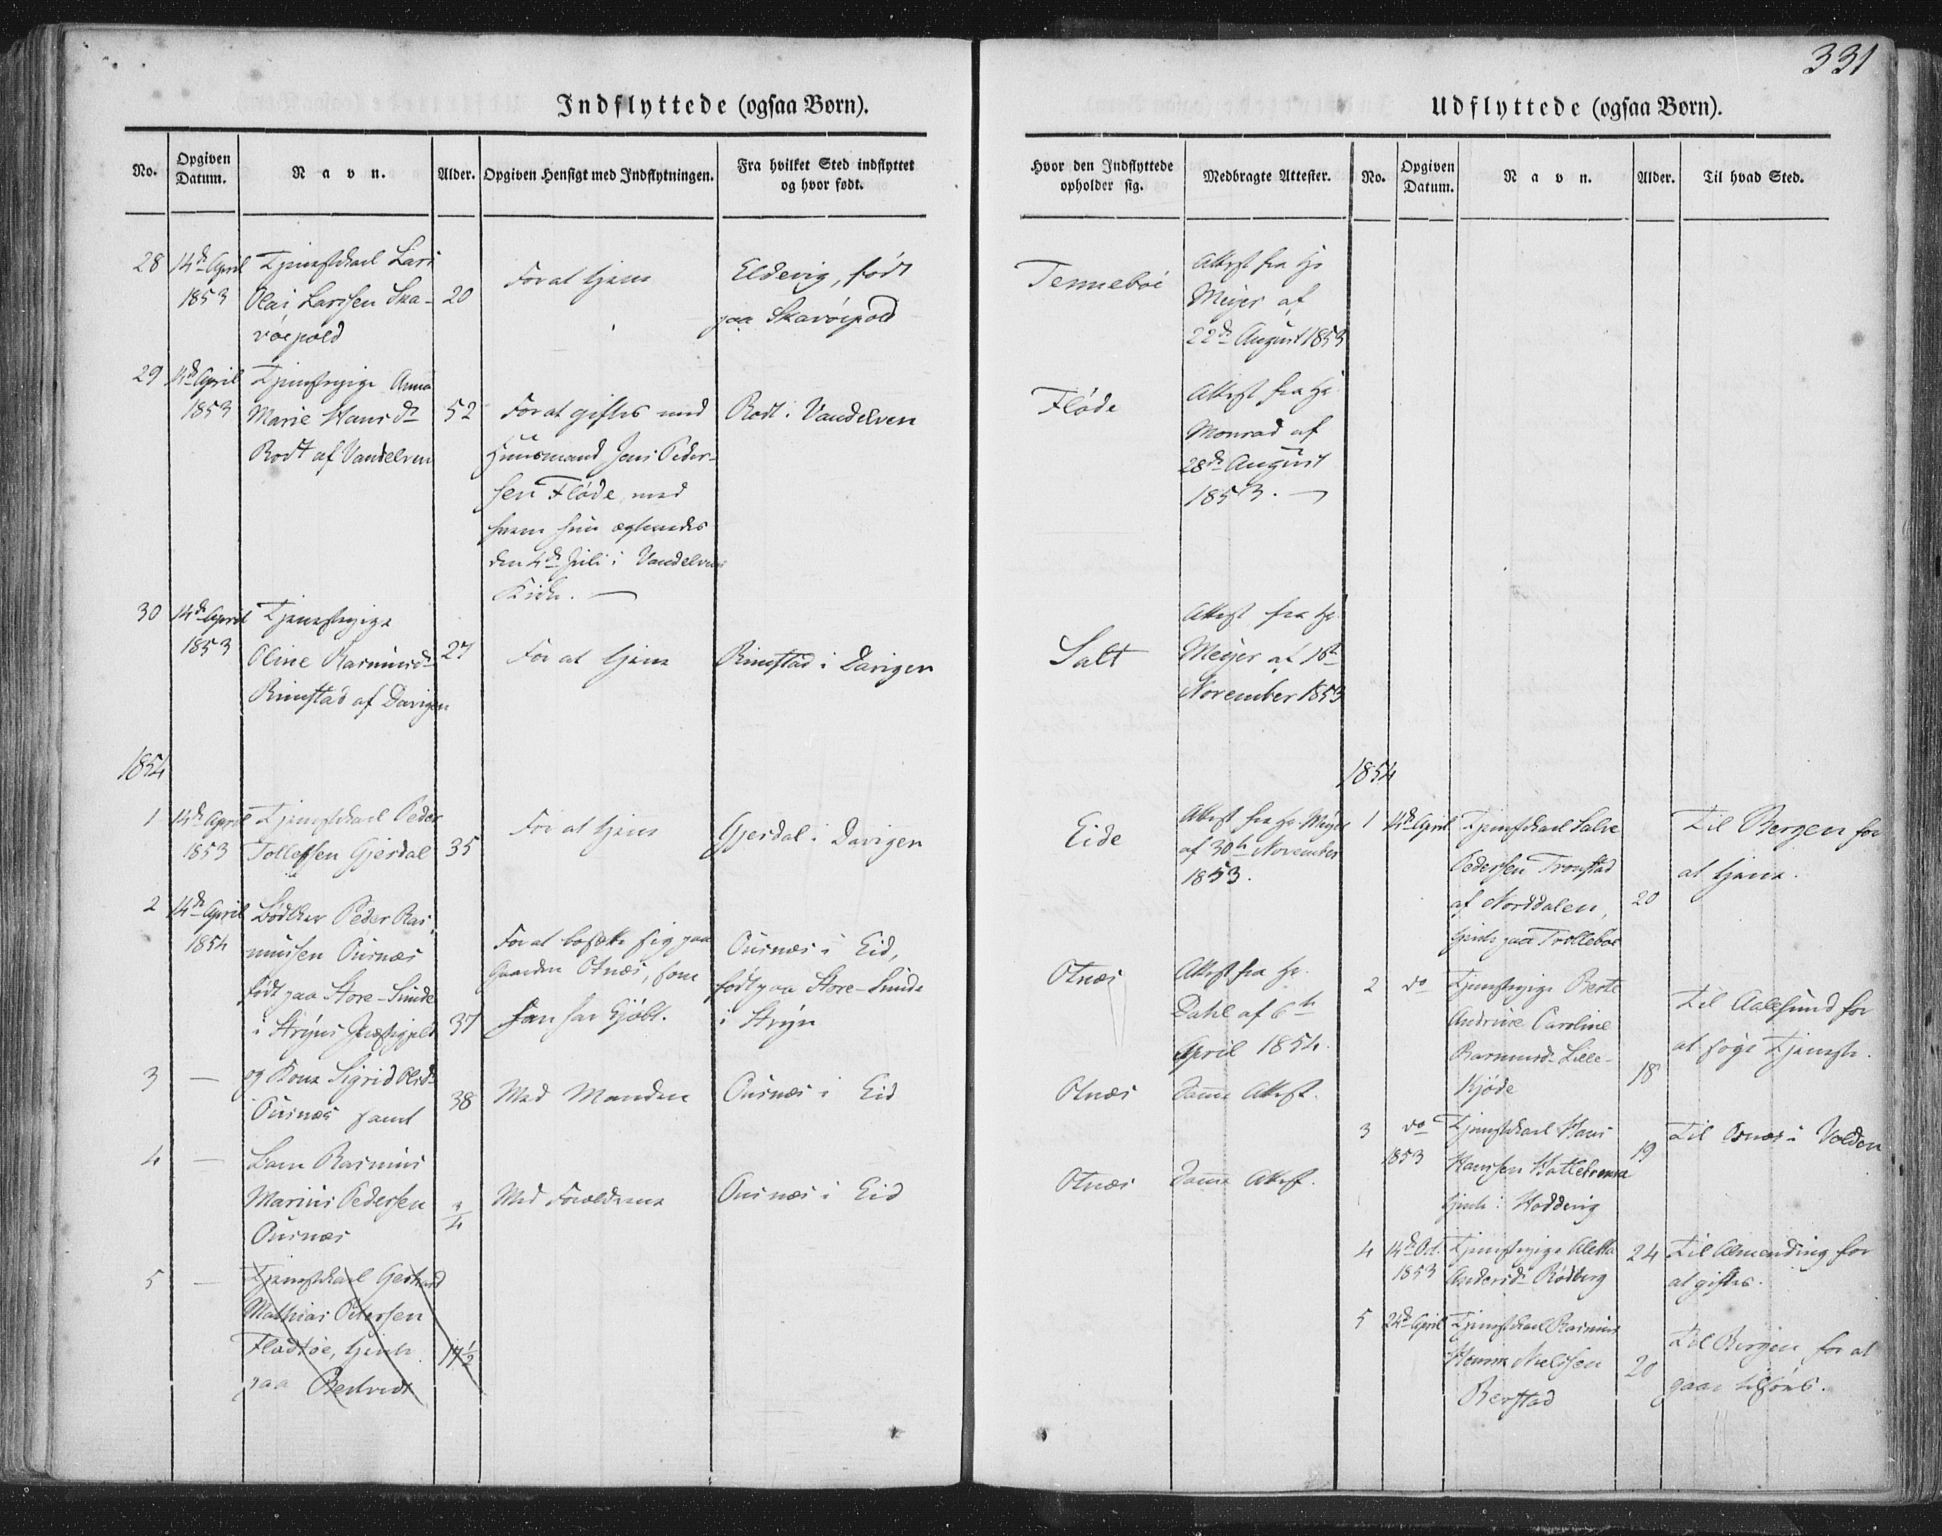 331
Indflyttede (ogsaa Børn).
No.
Opgiven
Datum.
Navn.
Alder.
Opgiven Hensigt med Indflytningen.
Fra hvilket Sted indflyttet
og hvor født.
28
14de April
1853
Tjenestekarl Lars
Olai Larssen Ska-
vöepold
20
For at tjene
Eldevig, født
paa Skavöepold
29
14de April
1853
Tjenestepige Anna
Marie Hansdr
Rodt af Vandelven
52
For at giftes med
Huusmand Jens Peder-
sen Flöde, med
hvem hun ægteviedes
den 4de Juli i Vandelvens
Kirke.
Rodt i Vandelven
30
14de April
1853
Tjenestepige
Oline Rasmusdr
Rimstad af Davigen
27
For at tjene
Rimstad i Davigen
1854
1
14de April
1853
Tjenestekarl Peder
Tollefsen Gjerdal
35
For at tjene
Gjerdal i Davigen
2
14de April
1854
Bödker Peder Ras-
mussen Ousnæs
født paa Store-Sunde
i Stryns Præstegjeld
37
For at bosætte sig paa
Gaarden Otnæs, som
han har kjöbt.
Ousnæs i Eid,
født paa Store-Sunde
i Stryn
3
—
og Kone Sigrid Olsdr
Ousnæs samt
38
Med Manden
Ousnæs i Eid
4
—
Barn Rasmus
Marius Pedersen
Ousnæs
3/4
Med Forældrene
Ousnæs i Eid
5
—
Tjenestekarl Gerhard
Mathias Petersen
Fladtöe, tjent
paa Bertvedt
17½
Udflyttede (ogsaa Børn).
Hvor den Indflyttede
opholder sig.
Medbragte Attester.
No.
Opgiven
Datum.
Navn.
Alder.
Til hvad Sted.
Tenneböe
Attest fra Hr
Meyer af
22de August 1853
Flöde
Attest fra Hr
Monrad af
28de August
1853.
Salt
Attest fra Hr
Meyer af 18de
November 1853
Eide
Attest fra Hr Meyer
af 30te November
1853.
Otnæs
Attest fra Hr.
Dahl af 6te
April 1854.
Otnæs
Samme Attest.
Otnæs
Samme Attest.
1854
1
14de April
Tjenestekarl Salve
Pedersen Tronstad
af Norddalen,
tjent paa Trolleböe
20
Til Bergen for
at tjene.
2
do
Tjenestepige Berte
Andrine Caroline
Rasmusdr Lille-
Kjöde
18
Til Aalesund for
at søge Tjeneste.
3
do
1853
Tjenestekarl Hans
Hanssen
tjent i Hoddevig
19
Til Osnæs i Volden
4
14de Oct.
1853
Tjenestepige Aletta
Andersdr Rödberg
24
Til Almending for
at giftes.
5
24de April
Tjenestekarl Rasmus
Henrik Nielssen
Berstad
20
Til Bergen for at
gaae tilsöes.